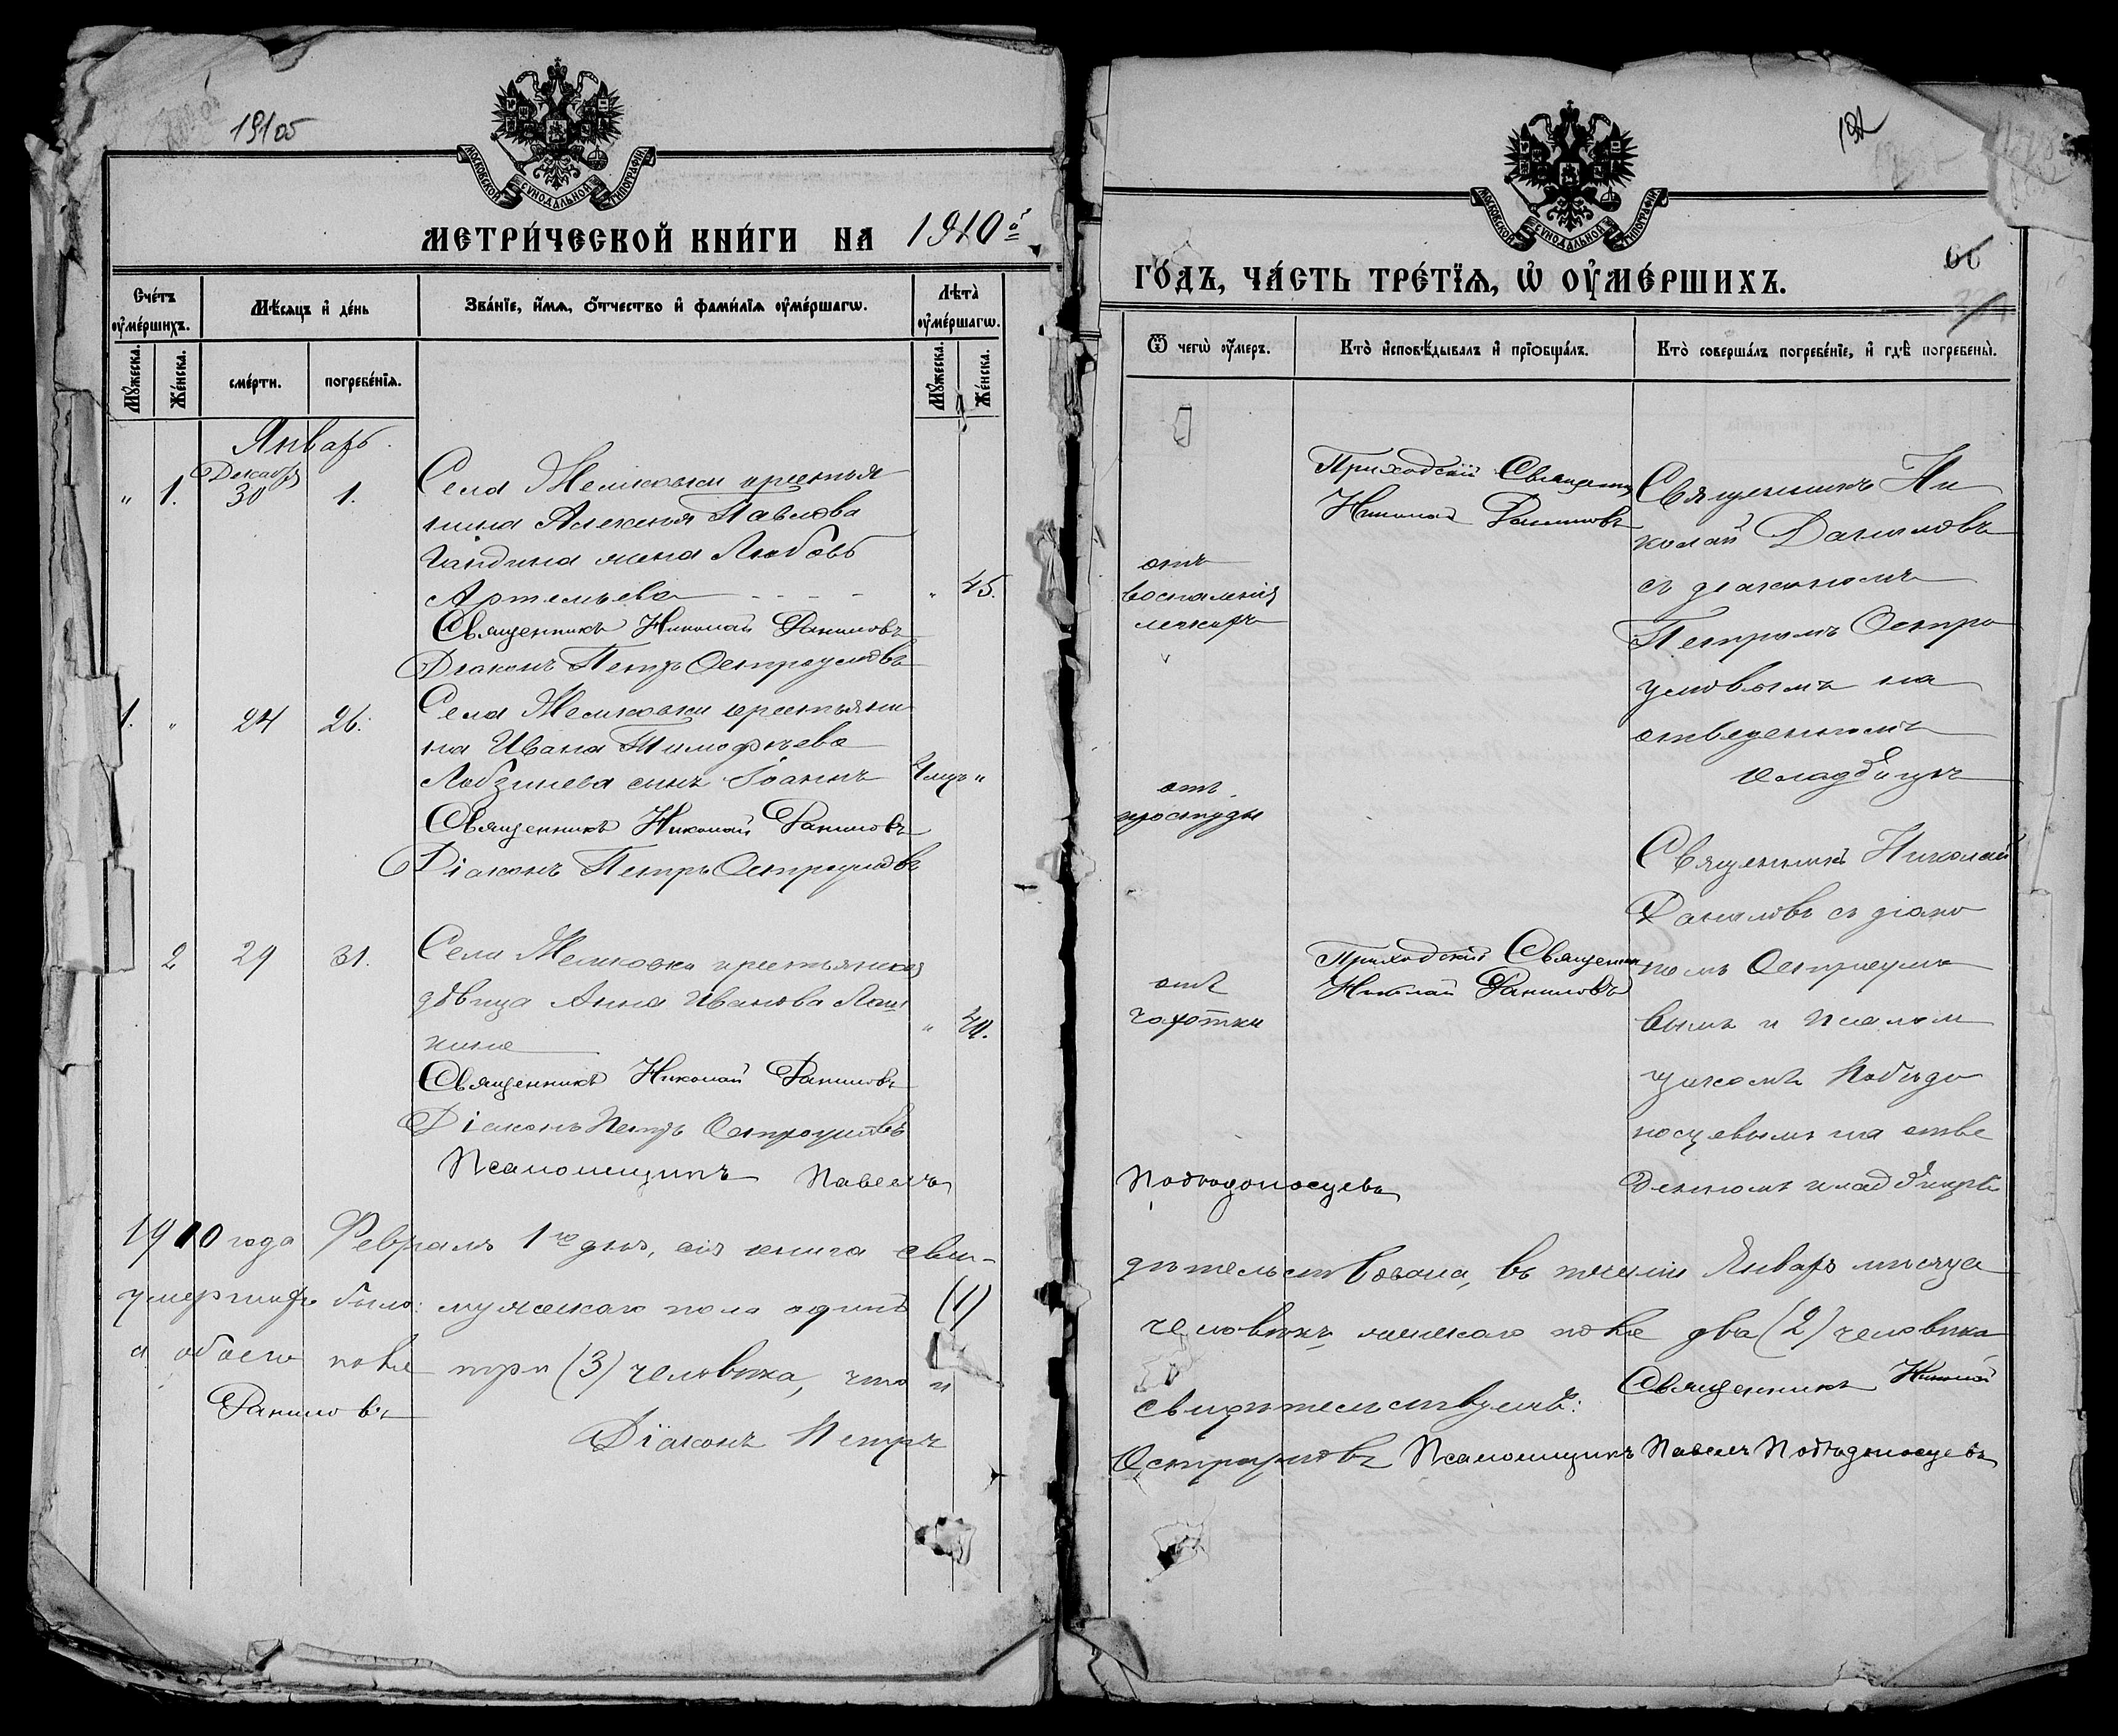 191об
МОСКОВСКОЙ СѴНОДАЛЬНОЙ ТИПОГРАФІИ
МЕТРИ́ЧЕСКОЙ КНИ́ГИ НА 1910й
Сче́тъ оу҆ме́ршихъ.
Мѣ́сяцъ и҆ де́нь
Зва́нїе, и҆́мѧ, ѻ҆́тчество и҆ фами́лїѧ оу҆ме́ршагѡ.
Лѣ́та оу҆ме́ршагѡ.
Мꙋ́жеска.
Же́нска.
сме́рти.
погребе́нїѧ.
Мꙋ́жеска.
Же́нска.
Январь.
Декабря
" 1. 30 1.
Села крестья
нина Алексея Павлова
жена Любовь
Артемьева " 45.
Священникъ Николай Даниловъ
Діаконъ Петръ Остроумовъ
1. " 24 26.
Села крестьяни
на Ивана Тимофѣева
сынъ Іоаннъ "
Священникъ Николай Даниловъ
Діаконъ Петръ Остроумовъ
2 29 31.
Села крестьянская
дѣвица Анна Иванова
" 40.
Священникъ Николай Даниловъ
Діаконъ Петръ Остроумовъ
Псаломщикъ Павелъ
1910 года Февраля 1го дня, сія книга сви-
умершихъ было: мужскаго пола одинъ (1)
а обоего пола три (3) человѣка, что и
Даниловъ
Діаконъ Петръ
191
66
МОСКОВСКОЙ СѴНОДАЛЬНОЙ ТИПОГРАФІИ
ГО́ДЪ, ЧА́СТЬ ТРЕ́ТЇѦ, Ѡ҆ ОУ҆МЕ́РШИХЪ.
Ѿ чегѡ̀ оу҆́меръ.
Кто̀ и҆сповѣ́дывалъ и҆ прїѻбща́лъ.
Кто̀ соверша́лъ погребе́нїе, и҆ гдѣ̀ погребены̀.
отъ
воспаленія
легкихъ
Приходскій Священникъ
Николай Даниловъ
Священникъ Ни
колай Даниловъ
съ діакономъ
Петромъ Остро
умовымъ на
отведенномъ
кладбищѣ
отъ
простуды
Священникъ Николай
Даниловъ съ діако
номъ Остроумо
вымъ и псалом
щикомъ Побѣдо
носцевымъ на отве
денномъ кладбищѣ
отъ
чахотки
Приходскій Священникъ
Николай Даниловъ
Побѣдоносцевъ
дѣтельствована, въ теченіи Январь мѣсяца
человѣкъ женскаго пола два (2) человѣка
свидѣтельствуемъ: Священникъ Николай
Остроумовъ Псаломщикъ Павелъ Побѣдоносцевъ